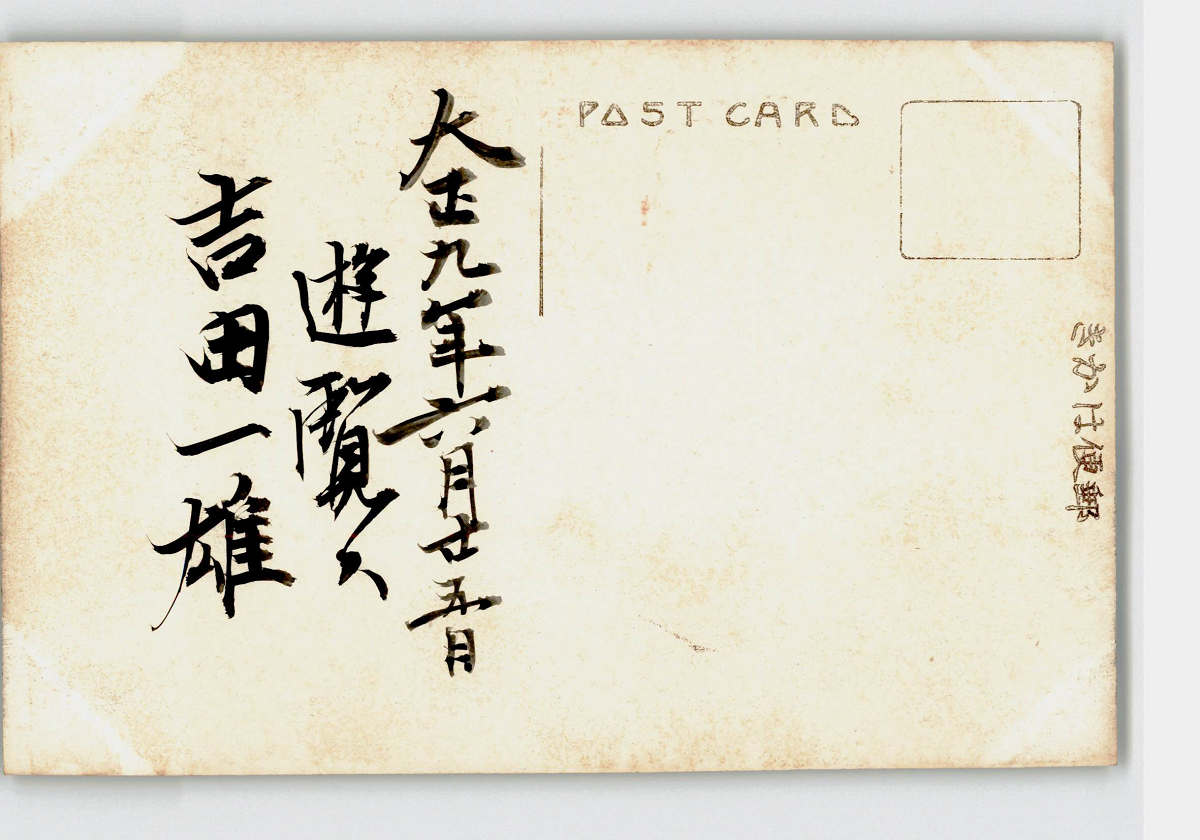 POST CARD
郵便はかき
大正九年六月廿五日
遊覧ス
吉田一雄